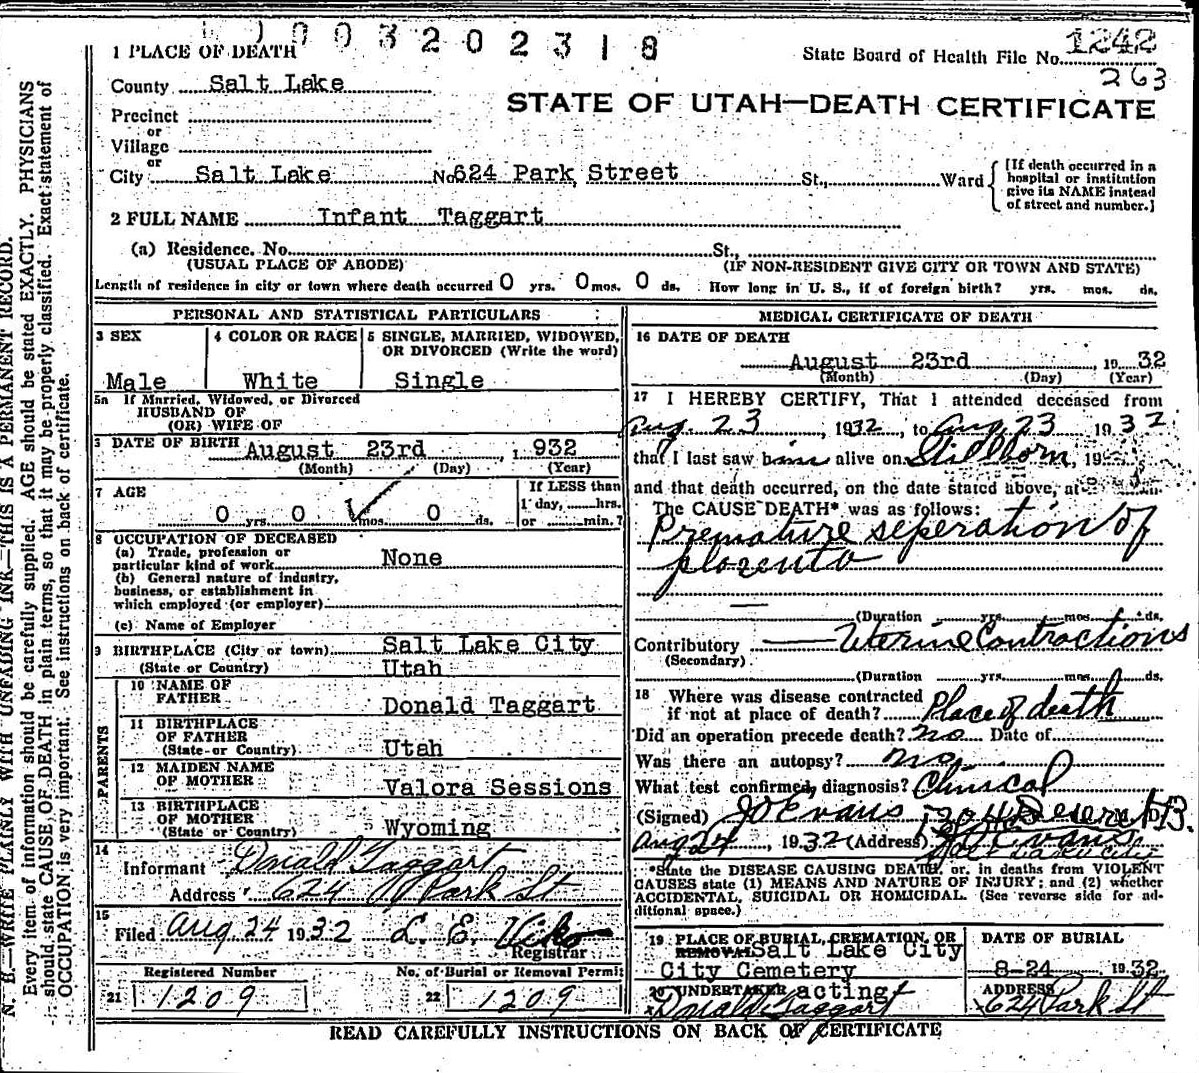 003202318
1 PLACE OF DEATH
State Board of Health File No. 1242
263
County Salt Lake
STATE OF UTAH—DEATH CERTIFICATE
Precinct
or
Village
or
City Salt Lake No. 624 Park Street St., Ward
[If death occurred in a
hospital or institution
give its NAME instead
of street and number.]
2 FULL NAME Infant Taggart
(a) Residence. No. St.,
(USUAL PLACE OF ABODE) (IF NON-RESIDENT GIVE CITY OR TOWN AND STATE)
Length of residence in city or town where death occurred 0 yrs. 0 mos. 0 ds. How long in U. S., if of foreign birth? yrs. mos. ds.
PERSONAL AND STATISTICAL PARTICULARS
3 SEX
Male
4 COLOR OR RACE
White
5 SINGLE, MARRIED, WIDOWED,
OR DIVORCED (Write the word)
Single
5a If Married, Widowed, or Divorced
HUSBAND OF
(OR) WIFE OF
6 DATE OF BIRTH August 23rd, 1932
(Month) (Day) (Year)
7 AGE
0 yrs. 0 mos. 0 ds.
If LESS than
1 day, hrs.
or min.?
8 OCCUPATION OF DECEASED
(a) Trade, profession or
particular kind of work None
(b) General nature of industry,
business, or establishment in
which employed (or employer)
(c) Name of Employer
9 BIRTHPLACE (City or town) Salt Lake City
(State or Country) Utah
PARENTS
10 NAME OF
FATHER Donald Taggart
11 BIRTHPLACE
OF FATHER
(State or Country) Utah
12 MAIDEN NAME
OF MOTHER Valora Sessions
13 BIRTHPLACE
OF MOTHER
(State or Country) Wyoming
14
Informant Donald Taggart
Address 624 Park St
15
Filed Aug 24 1932 L. E. Viko
Registrar
Registered Number No. of Burial or Removal Permit
21 1209 22 1209
MEDICAL CERTIFICATE OF DEATH
16 DATE OF DEATH
August 23rd, 1932
(Month) (Day) (Year)
17 I HEREBY CERTIFY, That I attended deceased from
Aug. 23, 1932, to Aug 23 1932
that I last saw him alive on Stillborn, 19
and that death occurred, on the date stated above, at
The CAUSE DEATH* was as follows:
Premature seperation of
placenta
(Duration yrs. mos. ds.
Contributory Uterine Contractions
(Secondary)
(Duration yrs. mos. ds.
18 Where was disease contracted
if not at place of death? Place of death
Did an operation precede death? no Date of
Was there an autopsy? no
What test confirmed, diagnosis? Clinical
(Signed) J O Evans
Aug 24, 1932 (Address)
*State the DISEASE CAUSING DEATH, or, in deaths from VIOLENT
CAUSES state (1) MEANS AND NATURE OF INJURY; and (2) whether
ACCIDENTAL, SUICIDAL OR HOMICIDAL. (See reverse side for ad-
ditional space.)
19 PLACE OF BURIAL, CREMATION, OR
REMOVAL Salt Lake City
City Cemetery
DATE OF BURIAL
8-24 1932
20 UNDERTAKER acting
x Donald Taggart
ADDRESS
x 624 Park St
READ CAREFULLY INSTRUCTIONS ON BACK OF CERTIFICATE
N. B.—WRITE PLAINLY WITH UNFADING INK—THIS IS A PERMANENT RECORD.
Every item of information should be carefully supplied. AGE should be stated EXACTLY. PHYSICIANS
should state CAUSE OF DEATH in plain terms, so that it may be properly classified. Exact statement of
OCCUPATION is very important. See instructions on back of certificate.